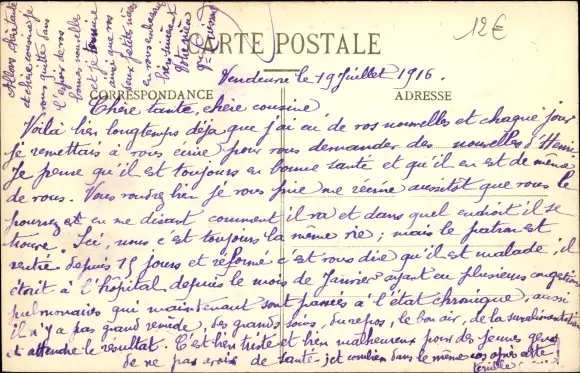 12€
CARTE POSTALE
CORRESPONDANCE
ADRESSE
Vendeuvre le 19 Juillet 1916.
Chère tante, chère cousine
Voilà bien longtemps déjà que j'ai eu de vos nouvelles et chaque jour
je remettais à vous écrire pour vous demander des nouvelles d'Henri
Je pense qu'il est toujours en bonne santé et qu'il en est de même
de vous. Vous voudrez bien je vous prie me récrire aussitôt que vous le
pourrez et en me disant comment il va et dans quel endroit il se
trouve. Ici, nous c'est toujours la même vie; mais le patron est
rentré depuis 15 jours et réformé c'est vous dire qu'il est malade, il
était à l'hôpital depuis le mois de Janvier ayant eu plusieurs congestions
pulmonaires qui maintenant sont passées à l'état chronique, aussi
il n'y a pas grand remède, des grands soins, du repos, le bon air, de la suralimentation
et attendre le résultat. C'est bien triste et bien malheureux pour des jeunes gens
de ne pas avoir de santé; et combien dans le même cas après cette
Allons chère tante
et chère cousine je
vous quitte dans
l'espoir de vos
bonnes nouvelles
et je termine
ainsi que nos
deux petits nièces
en vous embrassant
bien